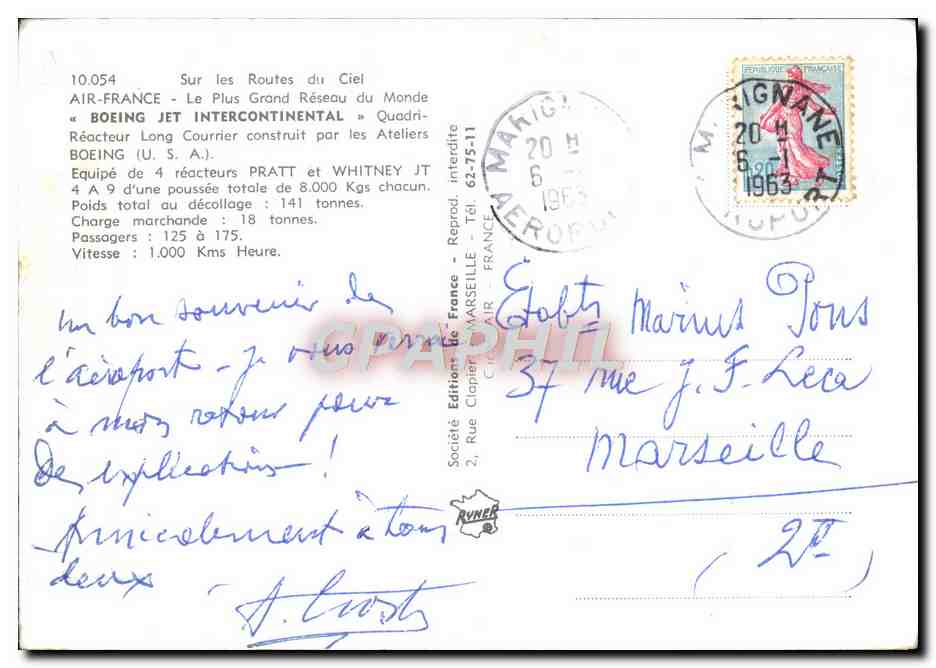 10.054 Sur les Routes du Ciel
AIR-FRANCE - Le Plus Grand Réseau du Monde
« BOEING JET INTERCONTINENTAL » Quadri-
Réacteur Long Courrier construit par les Ateliers
BOEING (U. S. A.).
Equipé de 4 réacteurs PRATT et WHITNEY JT
4 A 9 d'une poussée totale de 8.000 Kgs chacun.
Poids total au décollage : 141 tonnes.
Charge marchande : 18 tonnes.
Passagers : 125 à 175.
Vitesse : 1.000 Kms Heure.
un bon souvenir de
l'aéroport - je vous verrai
à mon retour pour
des explications !
Amicalement à tous
deux
Société Editions de France - Reprod. interdite
2, Rue Clapier - MARSEILLE - Tél. 62-75-11
AIR - FRANCE
RYNER
CPAPHIL
MARIG
20 H
6 -
1963
AEROPO
REPUBLIQUE FRANÇAISE
0,20
MARIGNANE
20 H
6 -1
1963
ROPORT
Etabts Marius Pons
37 rue J. F. Leca
Marseille
(2e)